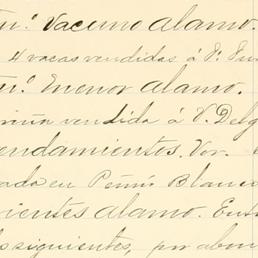 Vacuno Alamo.
4 vacas vendidas á
menor Alamo.
vendida á V. Delg
endamientos. Vor.
ada en Peñón Blanco
rientes Alamo. Ent
siguientes, por abon